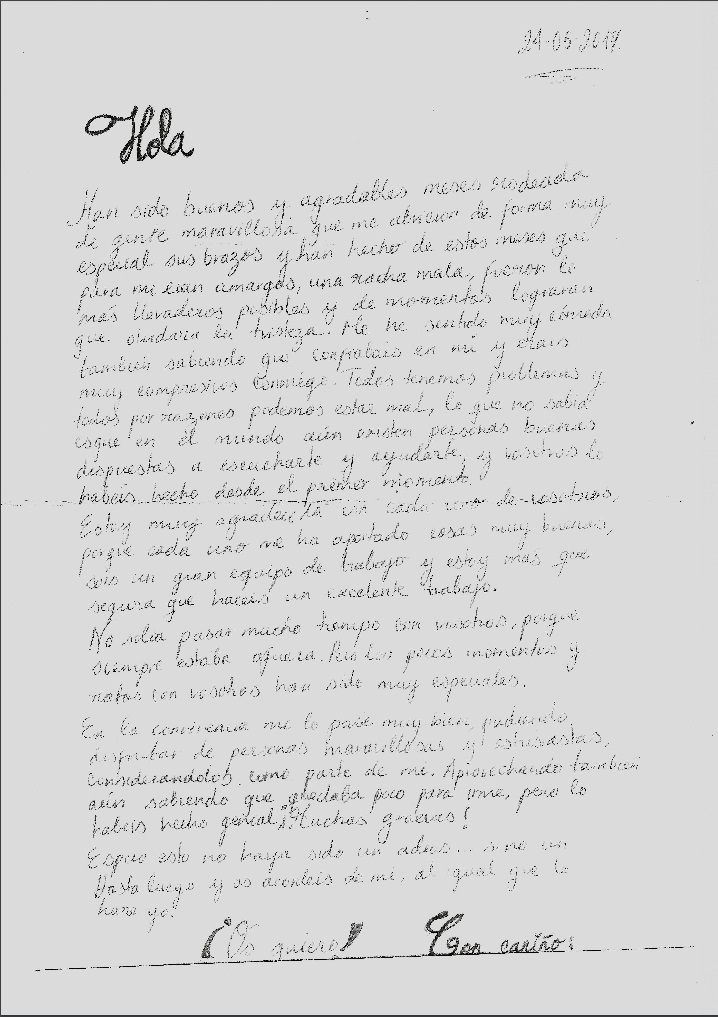 24-05-2017
Hola
Han sido buenos y agradables meses rodeada
de gente maravillosa que me abrieron de forma muy
especial sus brazos y han hecho de estos meses que
para mi eran amargos, una racha mala, fueron lo
más llevaderos posibles y de momentos lograran
que olvidara la tristeza. Me he sentido muy cómoda
también sabiendo que confiabais en mi y erais
muy compresivos conmigo. Todos tenemos problemas y
todos por razones podemos estar mal, lo que no sabia
esque en el mundo aún existen personas buenas
dispuestas a escucharte y ayudarte, y vosotros lo
habéis hecho desde el primer momento.
Estoy muy agradecida con cada uno de vosotros,
porque cada uno me ha aportado cosas muy buenas,
sois un gran equipo de trabajo y estoy mas que
segura que haceis un excelente trabajo.
No solia pasar mucho tiempo con vosotros, porque
siempre estaba afuera. Pero los pocos momentos y
ratos con vosotros han sido muy especiales.
En la convivencia me lo pase muy bien, pudiendo
disfrutar de personas maravillosas y
considerandolos como parte de mi. Aprovechando también
aún sabiendo que quedaba poco para irme, pero lo
habéis hecho genial, ¡Muchas gracias!
Espero esto no haya sido un adios... sino un
Hasta luego y os acordeis de mi, al igual que lo
hare yo.
¡Os quiero! Con cariño: